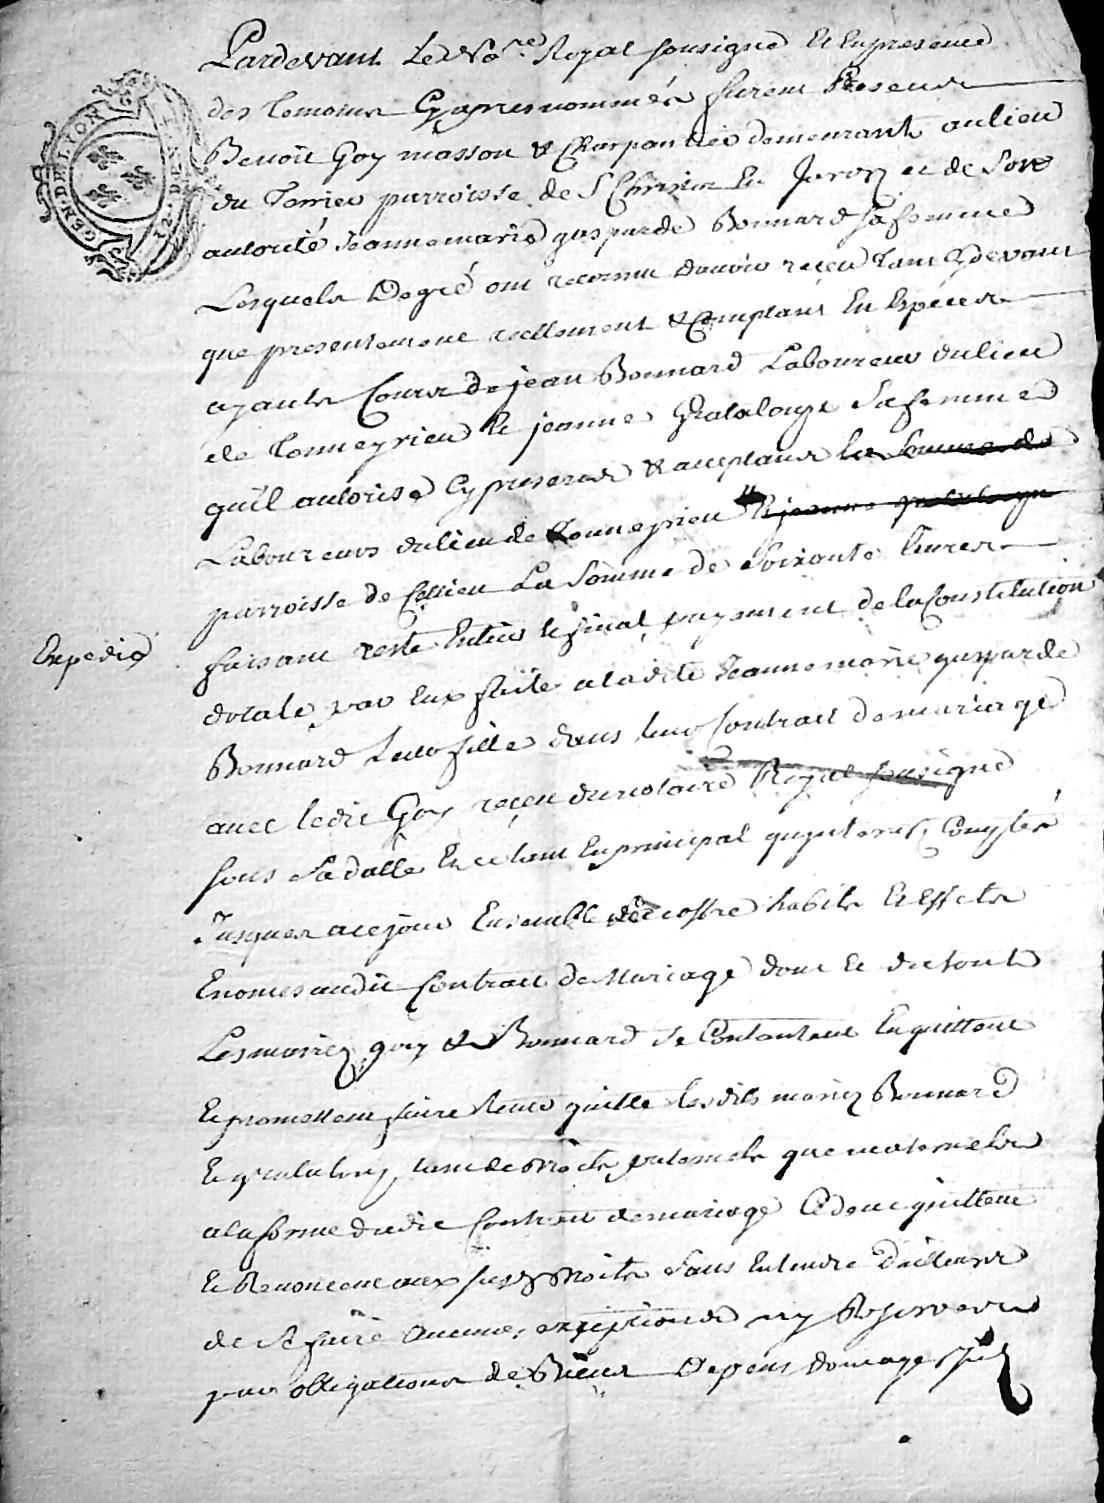 Pardevant Le No.re Royal sousigné Et Enpresence
des Temoins Cyapresnommés furent Presens
Benoit Goy masson & Charpantier demeurant aulieu
du Terrier parroisse de St Christ En Jarez et de Son
autorité Jeannemarie gasparde Bonnard safemme
Lesquels Degré ont reconnu avoir receu tant Cydevant
que presentement reellement & Comptant En Espéces
ayants Cours de jean Bonnard Laboureur dulieu
de Tonneyrieu & jeanne Grataloup Safemme
quil autorise Cypresents & aceptants la Somme de
Laboureurs dulieu de Tonneyrieu & jeanne grataloup
parroisse de Cellieu La Somme de Soixante livres
faisant reste Entier & final payement de la Constitution
Expedié
dotale par Eux faite aladite Jeannemarie gasparde
Bonnard Leur fille dans leur Contrait demariage
avec ledit Goy reçeu dunotaire Royal sousigné
sous Sadatte Et cetant Enprincipal quinterets Comptés
Jusques acejour Ensemble le coffre habits Et Effets
Enoncés audit Contrait deMariage dont Et dutout
Lesmariez goy & Bonnard se Contantent Enquittent
Et promettent faire tenir quitte lesdits mariez Bonnard
Et grataloup, tant desdroits paternels que maternels
alaforme dudit Contrait demariage Cedent quittent
Et Renoncent aux susd droits Sans Entendre dailleurs
de se faire aucunes exceptions ny Reserves
par obligations de Biens Depens domages &